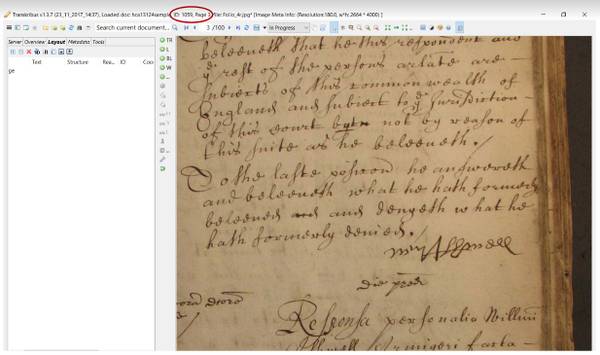 Transkribus v1.3.7 (23_11_2017_14:37), Loaded doc: hca13124sample, ID: 1059, Page 3, file: Folio_4r.jpg* [Image Meta Info: (Resolution:180.0, w*h: 2664 * 4000) ]
Search current document...
3 /100
In Progress
Server Overview Layout Metadata Tools
Text Structure Rea... ID Coo
ge
beleeueth that he this respondent and
ye rest of the persons arlate are
subiects of this common wealth of
England and subiect to ye Jurisdiction
of this court but not by reason of
this suite as he beleeueth./
To the laste posicion he answereth
and beleeueth what he hath formerly
beleeued and and denyeth what he
hath formerly denied./
die pred
Responsa personalia Willmi
Ashwell armigeri facta